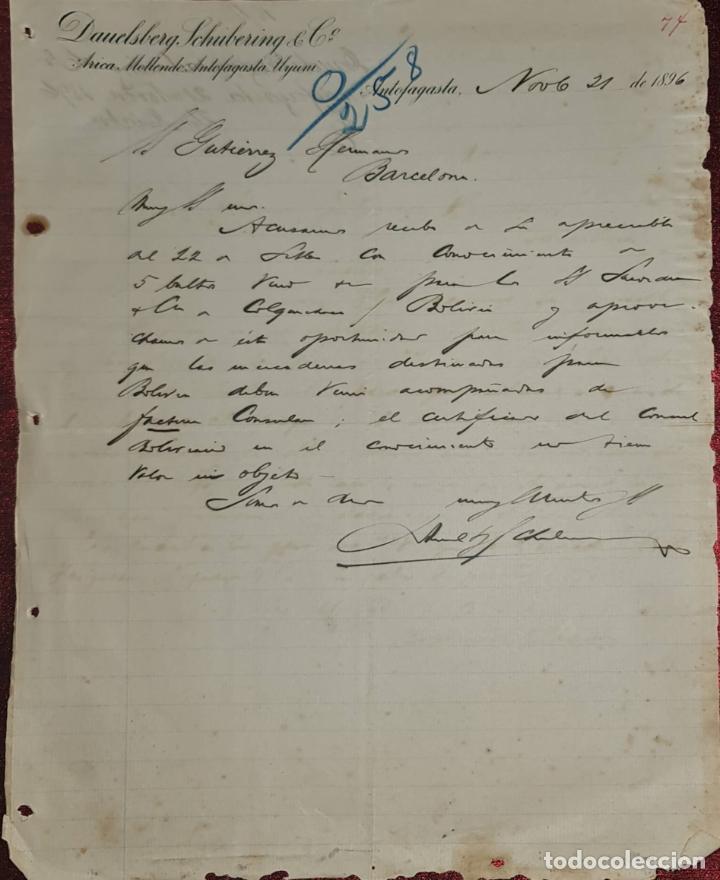 Dauelsberg, Schubering & Cº
Arica, Mollendo, Antofagasta, Uyuni
74
0/258
Antofagasta, Novb 21 de 1896
Gutierrez Hermanos
Barcelona.
Muy
Acusamos recibo de la apreciable
del 22 de con conocimiento de
5 bultos Vino para los
& Ca de / Bolivia y aprove-
chamos de esta oportunidad para informarles
que las mercaderias destinadas para
Bolivia deben venir acompañadas de
factura Consular; el certificado del Consul
Boliviano en el conocimiento no tiene
valor ni objeto
Somos de
todocoleccion
todocoleccion.net